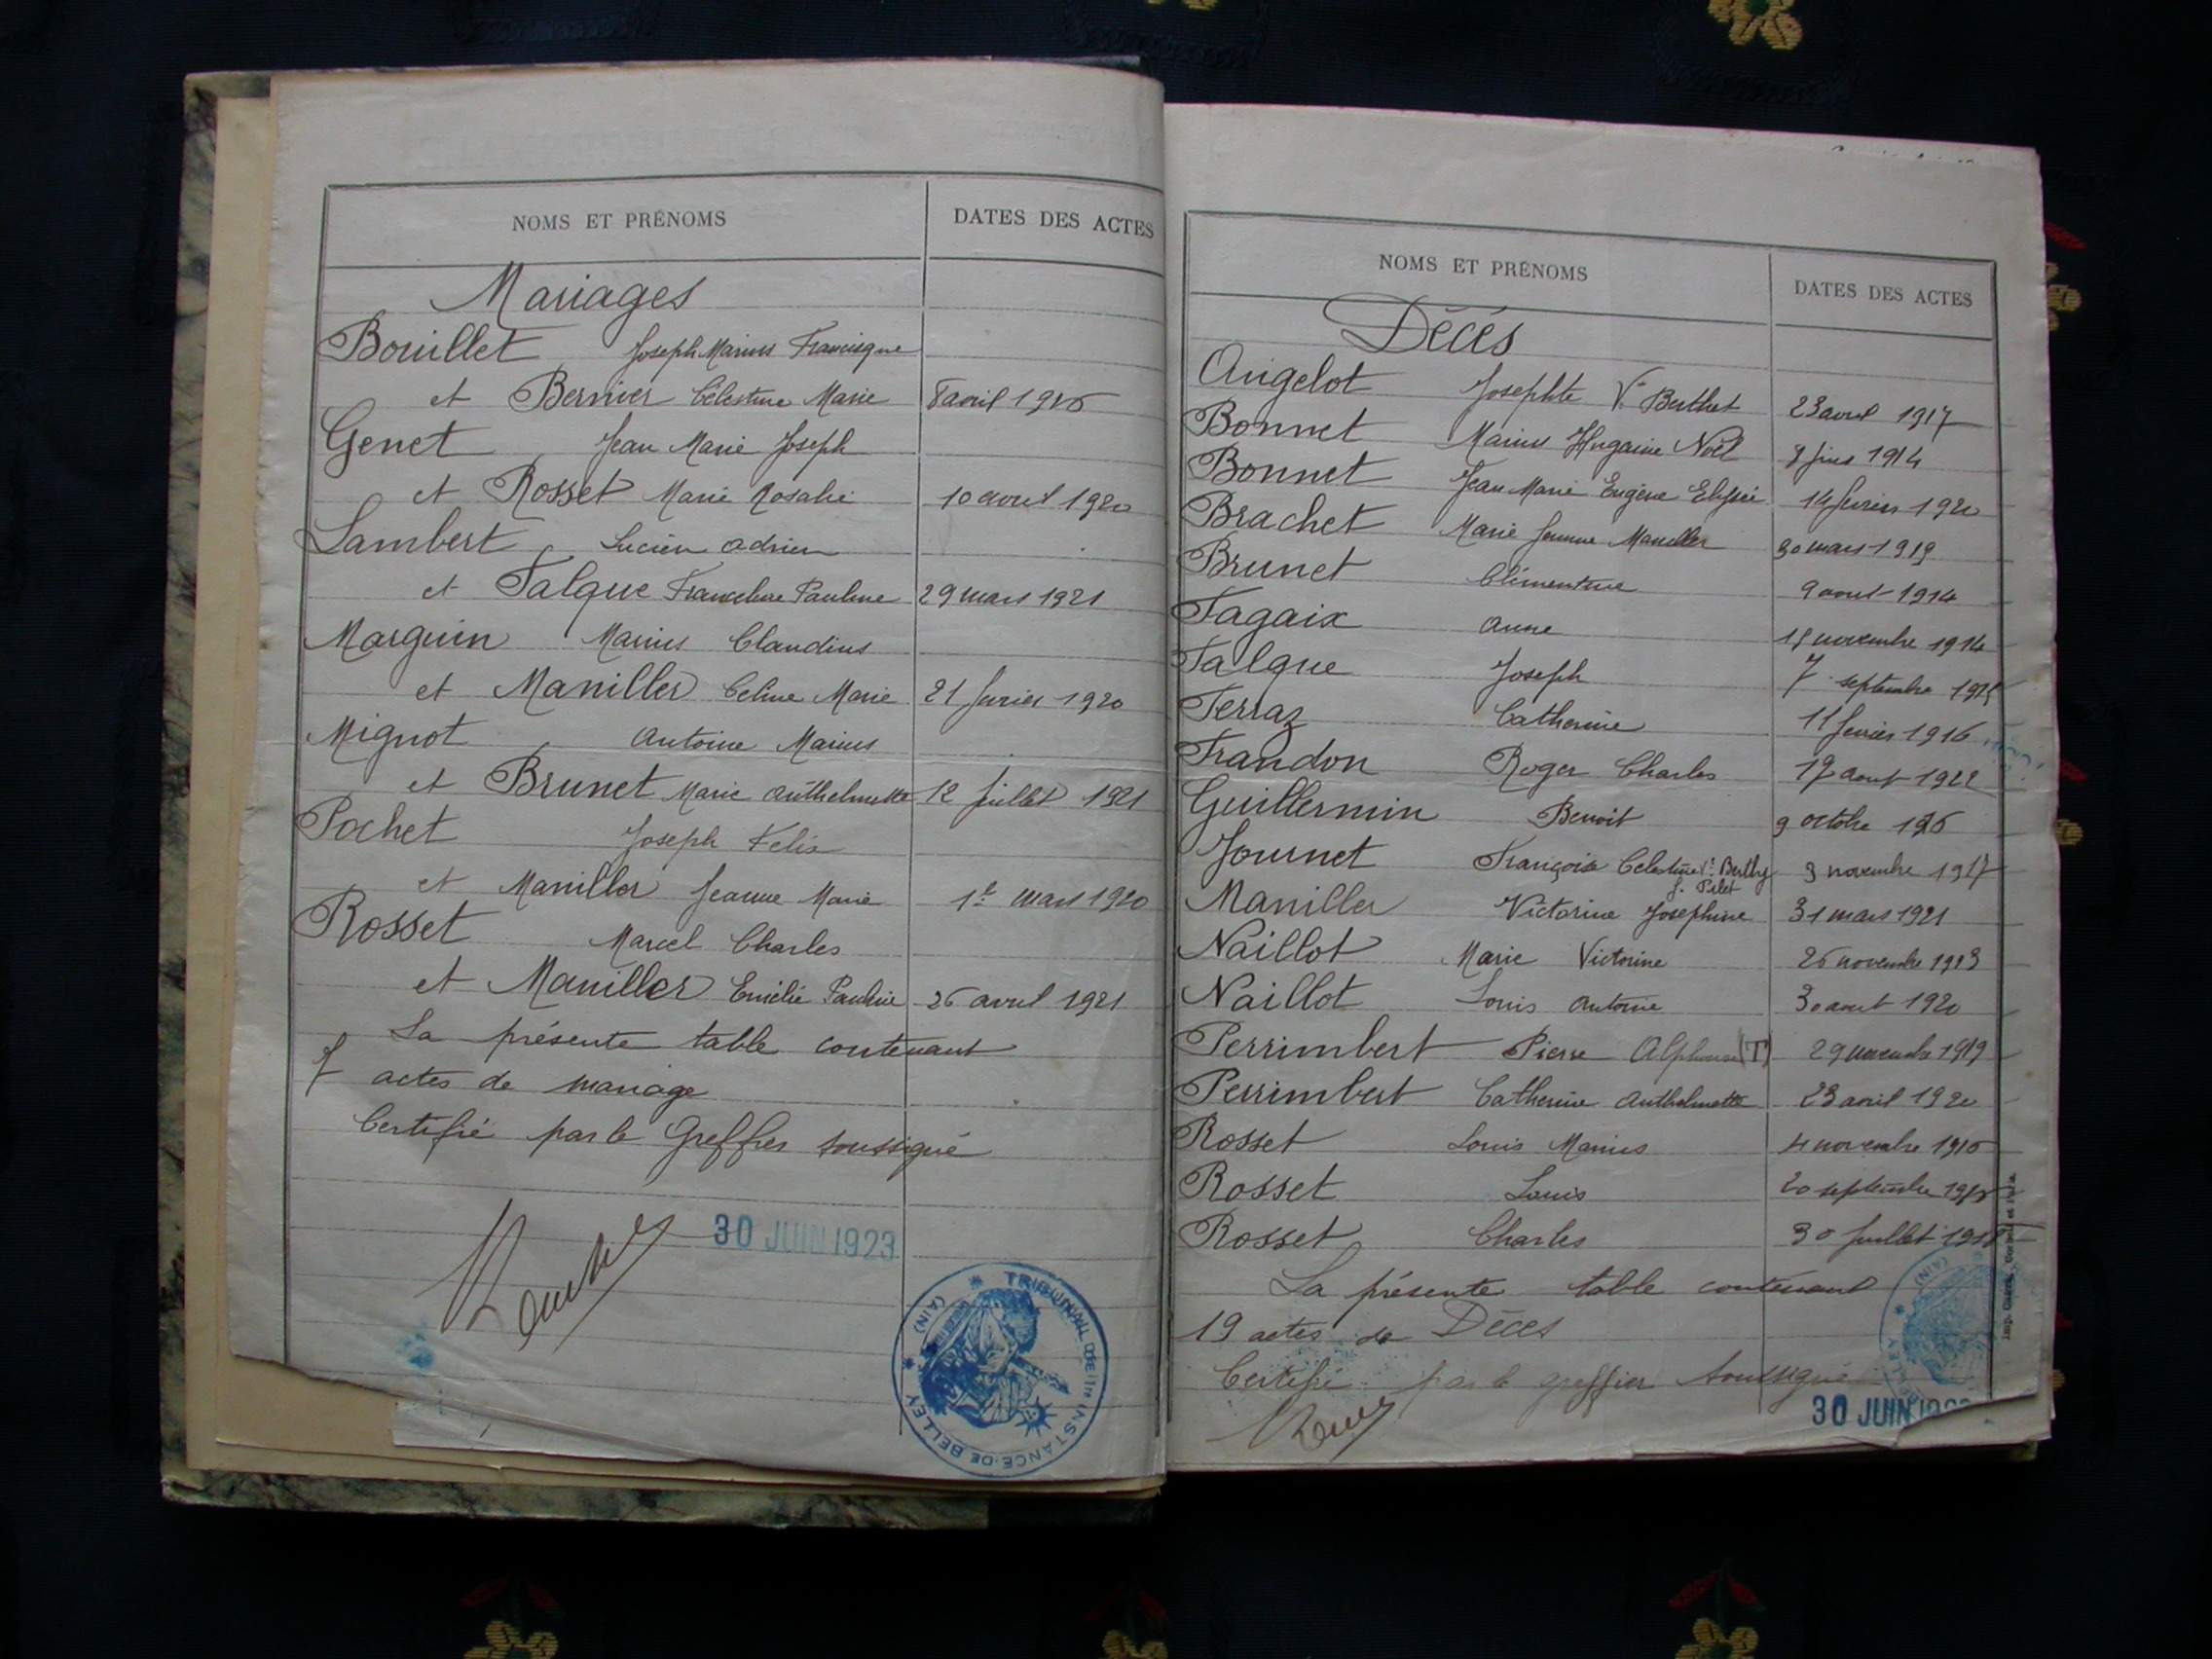 NOMS ET PRÉNOMS DATES DES ACTES
Mariages
Bouillet Joseph Marius Francisque
et Bernier Célestine Marie 8 avril 1916
Genet Jean Marie Joseph
et Rosset Marie Rosalie 10 avril 1920
Lambert Lucien Adrien
et Falque Franceline Pauline 29 mars 1921
Marguin Marius Claudius
et Maniller Celine Marie 21 fevrier 1920
Mignot Antoine Marius
et Brunet Marie Anthelmette 12 juillet 1921
Pochet Joseph Felix
et Maniller Jeanne Marie 1er mars 1920
Rosset Marcel Charles
et Maniller Emélie Pauline 26 avril 1921
La présente table contenant
7 actes de mariage
Certifié par le Greffier soussigné
30 JUIN 1923
TRIBUNAL DE 1re INSTANCE DE BELLEY (AIN)
NOMS ET PRÉNOMS DATES DES ACTES
Décés
Angelot Josephte Ve Berthet 23 avril 1917
Bonnet Marius Noël 1914
Bonnet Jean Marie Eugène 14 fevrier 1920
Brachet Marie Jeanne 30 mars 1919
Brunet Clémentine 9 aout 1914
Fagaix Anne novembre 1914
Falque Joseph 7 septembre
Ferraz Catherine 11 fevrier 1916
Frandon Roger Charles 17 aout 1922
Guillermin Benoit 9 octobre
Journet Françoise Celestine Ve Berthy 3 novembre 1917
Maniller Victorine Josephine 31 mars 1921
Naillot Marie Victorine 26 novembre 1913
Naillot Louis Antoine 30 aout 1920
Perrimbert Pierre Alphonse (T) 29 novembre 1919
Perrimbert Catherine Anthelmette 23 avril 1920
Rosset Louis Marius 4 novembre 1916
Rosset Louis 20 septembre
Rosset Charles 30 juillet
La présente table contenant
19 actes de Décès
Certifié par le greffier soussigné
30 JUIN